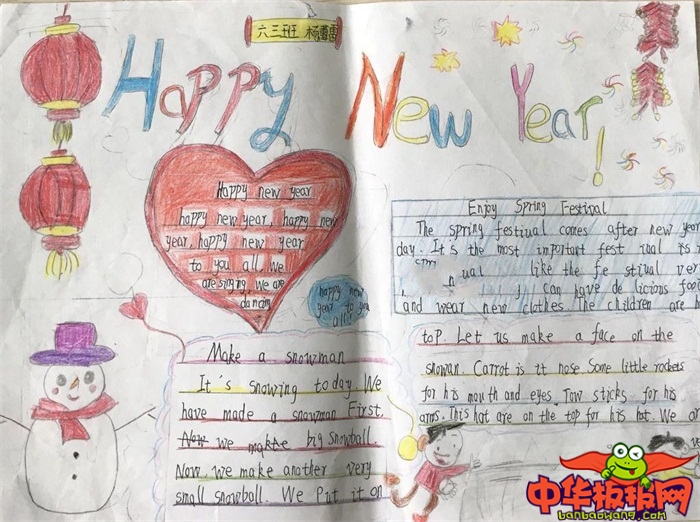 六三班 杨蕾蕾
Happy New Year!
Happy new year
happy new year, happy new
year, happy new year
to you all. We
are singing, We are
dancing
happy new
year to you
all!!
Enjoy Spring Festival
The spring festival comes after new year
day. It is the most inportant fest ival is
like the fe stival
can have de licious
and wear new clothes. The children are
Make a snowman
It's snowing today. We
have made a snowman First
Now we make big snowball.
Now we make another very
small snowball. We Put it on
top. Let us make a face on the
snowan. Carrot is it nose. Some little rockets
for his mouth and eyes. Tow sticks for his
arms. This hat are on the top for his hat. We
中华板报网
banbaowang.com